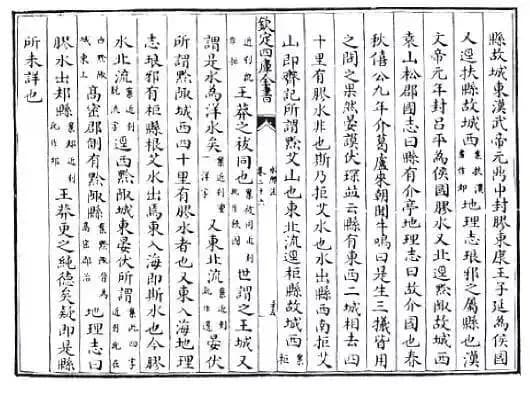 縣故城東漢武帝元鼎中封膠東康王子延為侯國
又逕扶縣故城西案扶漢書作邞地理志琅邪之屬縣也漢
文帝元年封呂平為侯國膠水又北逕黔陬故城西
袁山松郡國志曰縣有介亭地理志曰故介國也春
秋僖公九年介葛盧來朝聞牛鳴曰是生三犧皆用
之問之果然晏謨伏琛並云縣有東西二城相去四
十里有膠水非也斯乃拒艾水也水出縣西南拒艾
山即齊記所謂黔艾山也東北流逕柜縣故城西案柜
欽定四庫全書
水經注
卷二十六
近刻訛作拒王莽之祓同也案祓同近刻訛作世謂之王城又
謂是水為洋水矣案近刻一洋字又東北流案近刻訛作逕晏伏
所謂黔陬城西四十里有膠水者也又東入海地理
志琅邪有柜縣根艾水出焉東入海即斯水也今膠
水北流案近刻脫流字逕西黔陬城東晏伏所謂案此四字近刻訛在
西黔陬城東上高密郡側有黔陬縣案黔陬晉為高密郡治地理志曰
膠水出邞縣案邞近刻訛作邦王莽更之純德矣疑即是縣
所未詳也